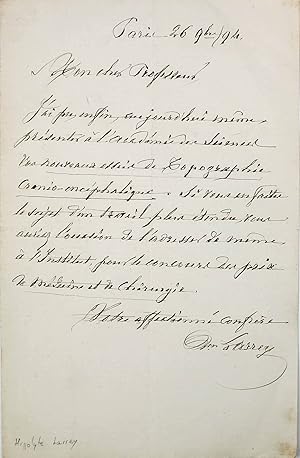 Paris 26 9bre/94.
Mon cher Professeur
J'ai pu enfin, aujourd'hui même,
présenter à l'Académie des Sciences
vos nouveaux essais de Topographie
Cranio-encéphalique. Si vous en faites
le sujet d'un travail plus étendu vous
auriez l'occasion de l'adresser de même
à l'Institut pour le concours des prix
de Médecine et de Chirurgie.
Votre affectionné confrère
Larrey
Hippolyte Larrey